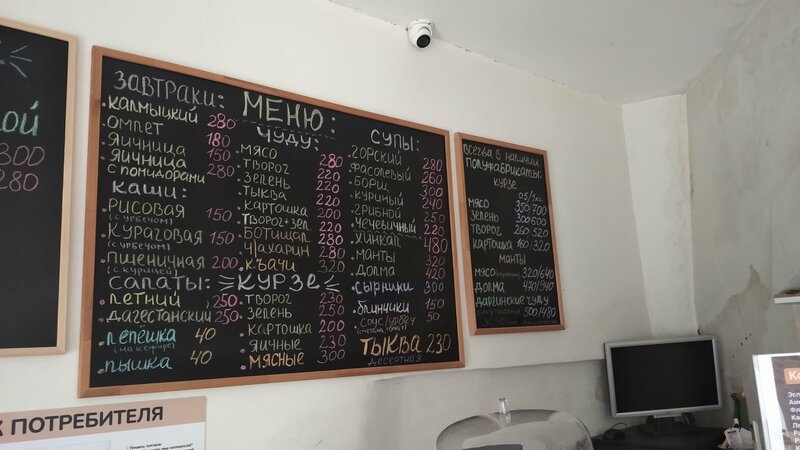 ОЙ
300
280
МЕНЮ:
ЗАВТРАКИ:
КАЛМЫЦКИЙ 280
ОМЛЕТ 180
ЯИЧНИЦА 150
ЯИЧНИЦА 280
С ПОМИДОРАМИ
КАШИ:
РИСОВАЯ 150
(С УРБЕЧОМ)
КУРАГОВАЯ 150
(С УРБЕЧОМ)
ПШЕНИЧНАЯ 200
(С КУРИЦЕЙ)
САЛАТЫ:
ЛЕТНИЙ 250
ДАГЕСТАНСКИЙ 250
ЛЕПЁШКА 40
(НА КЕФИРЕ)
ПЫШКА 40
ЧУДУ:
МЯСО 280
ТВОРОГ 220
ЗЕЛЕНЬ 220
ТЫКВА 220
КАРТОШКА 200
ТВОРОГ+ЗЕЛ 220
БОТИЩАЛ 280
Ч|АХАРИН 280
КЪАЧИ 320
КУРЗЕ
ТВОРОГ 230
ЗЕЛЕНЬ 250
КАРТОШКА 200
ЯИЧНЫЕ 230
МЯСНЫЕ 300
СУПЫ:
ГОРСКИЙ 280
ФАСОЛЕВЫЙ 260
БОРЩ 300
КУРИНЫЙ 240
ГРИБНОЙ 250
ЧЕЧЕВИЧНЫЙ 220
ХИНКАЛ 480
МАНТЫ 320
ДОЛМА 420
СЫРНИКИ 300
БЛИНЧИКИ 150
СОУС/УРБЕЧ 50
ТЫКВА 230
ДЕСЕРТНАЯ
ВСЕГДА В НАЛИЧИИ
ПОЛУФАБРИКАТЫ:
КУРЗЕ
0.5/1кг
МЯСО 350/700
ЗЕЛЕНЬ 300/600
ТВОРОГ 260/520
КАРТОШКА 160/320
МАНТЫ
МЯСО 320/640
ДОЛМА 470/940
ДАРГИНСКИЕ ЧУДУ
500/480
К ПОТРЕБИТЕЛЯ